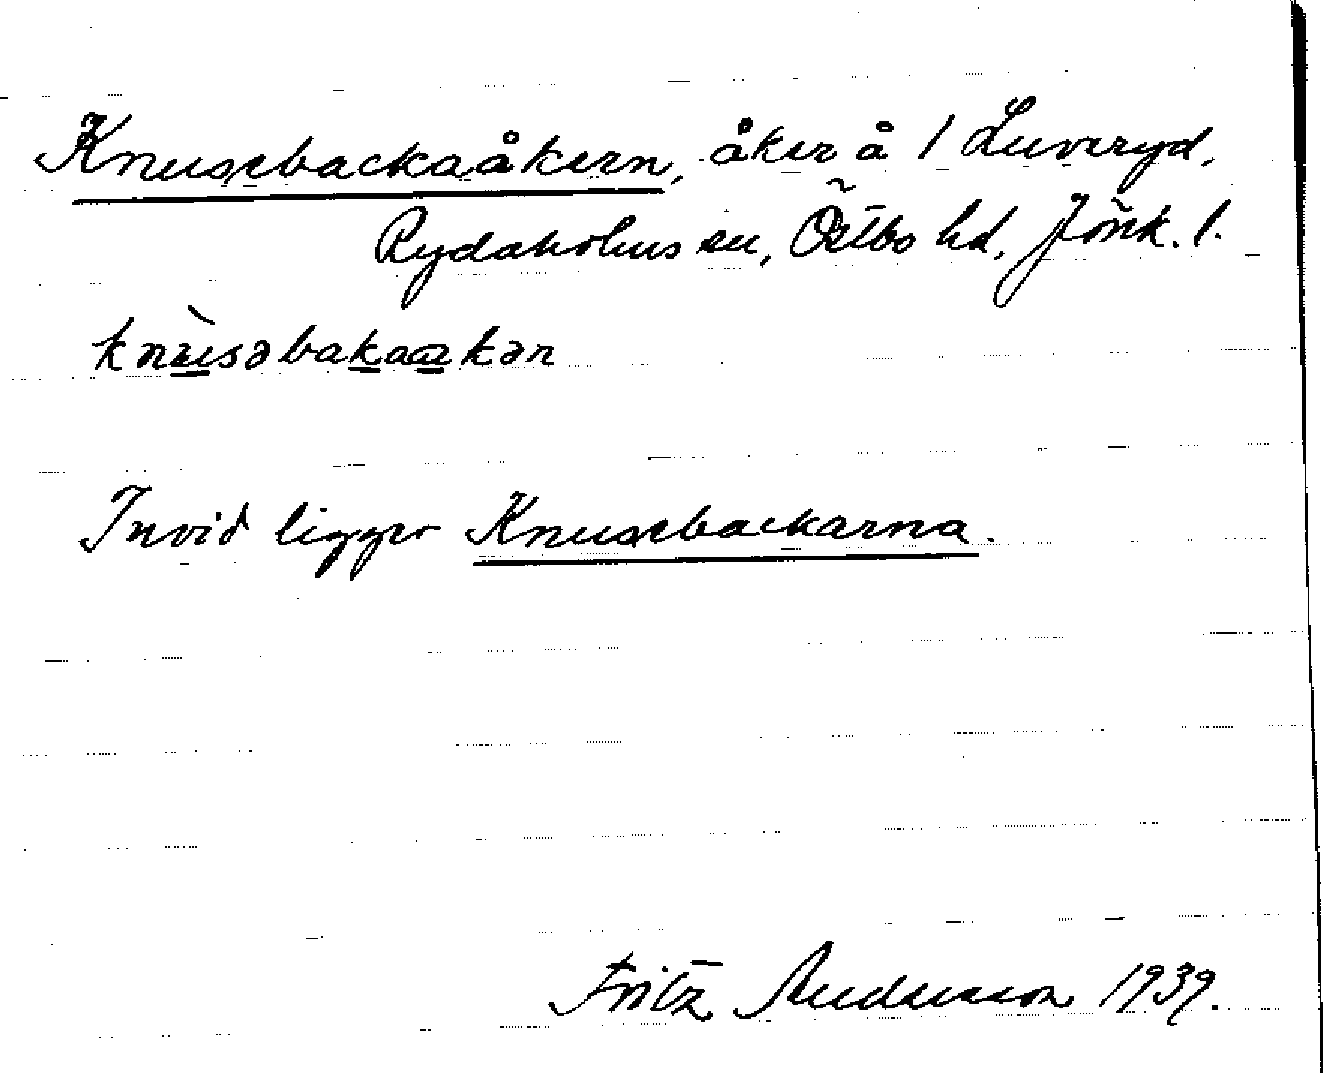 Knusebackaåkern, åker å 1 Luveryd,
Rydaholms sn, Östbo hd, Jönk. l.
knùsəbakaakən
Invid ligger Knusebackarna.
Fritz Andersson 1939.